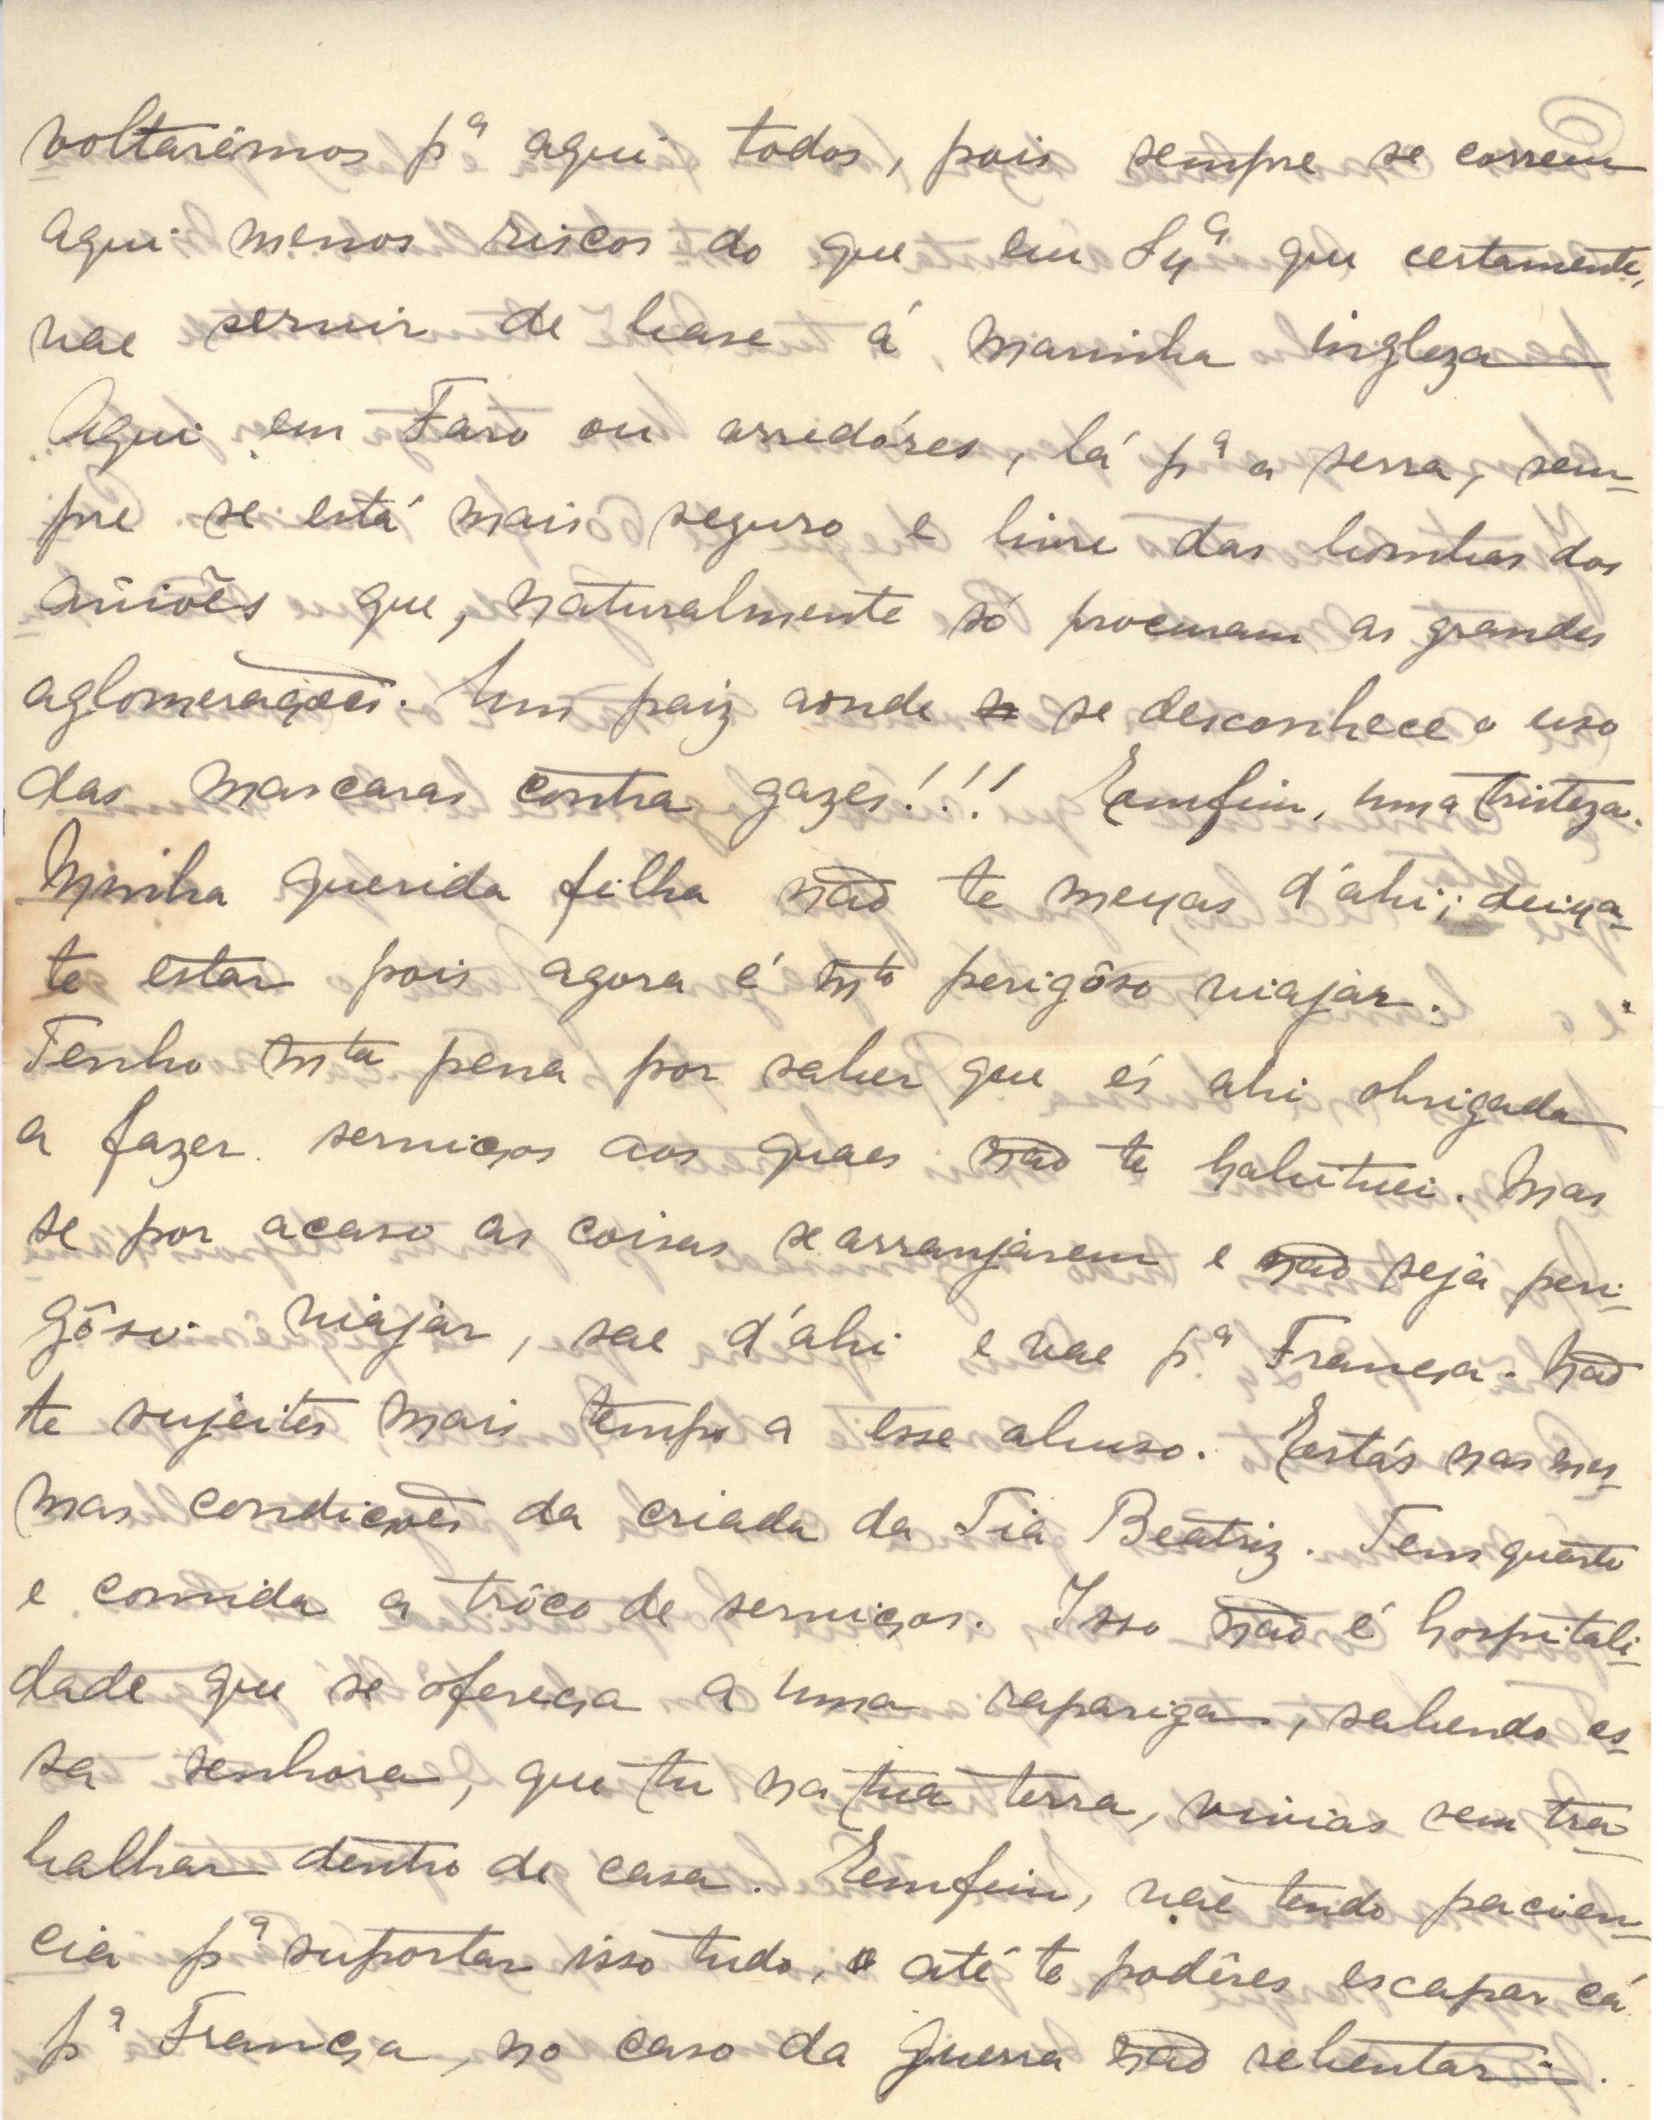 voltarêmos pª aqui todos, pois sempre se correm
aqui menos riscos do que em Lxª que certamente,
vae servir de base á marinha ingleza
Aqui em Faro ou arredóres, lá pª a serra, sem-
pre se está mais seguro e livre das bombas dos
aviões que, naturalmente só procuram as grandes
aglomerações. Um paiz aonde se desconhece o uso
das mascaras contra gazes!!! Emfim, uma tristeza.
Minha querida filha não te mexas d'ahi; deixa-
te estar pois agora é mto perigôso viajar.
Tenho mta pena por saber que és ahi obrigada
a fazer serviços aos quaes não te habituei. Mas
se por acaso as coisas se arranjárem e não seja peri-
gôso viajar, sae d'ahi e vae pª França. Não
te sujeites mais tempo a esse abuso. Estás nas mes-
mas condições da criada da Tia Beatriz. Tens quarto
e comida a trôco de serviços. Isso não é hospitali-
dade que se ofereça a uma rapariga, sabendo es-
sa senhora, que tu na tua terra, vivias sem tra-
balhar dentro de casa. Emfim, vae tendo pacien-
cia pª suportar isso tudo, até te podêres escapar cá
pª França, no caso da guerra não rebentar.